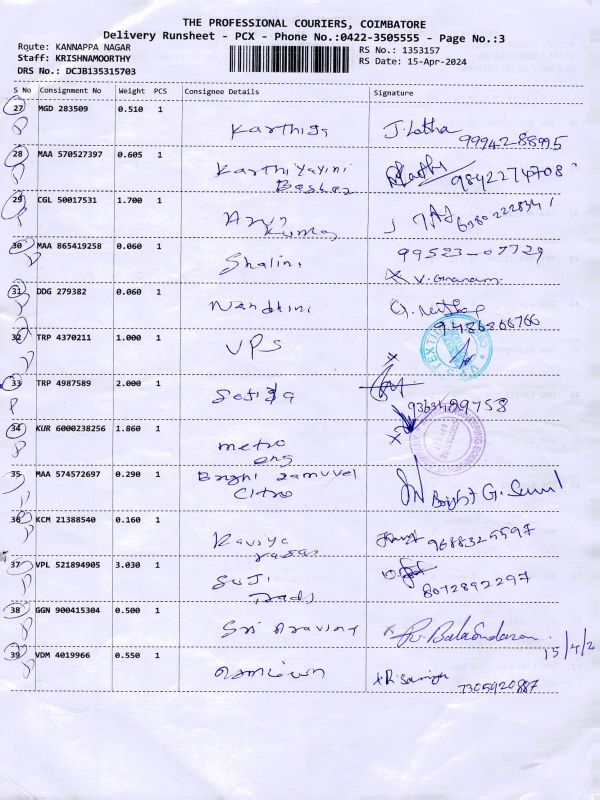 THE PROFESSIONAL COURIERS, COIMBATORE
Delivery Runsheet - PCX - Phone No.:0422-3505555 - Page No.:3
Route: KANNAPPA NAGAR
Staff: KRISHNAMOORTHY
DRS No.: DCJB135315703
RS No.: 1353157
RS Date: 15-Apr-2024
S No Consignment No Weight PCS Consignee Details Signature
27 MGD 283509 0.510 1 Karthiga J. Latha
9994288995
28 MAA 570527397 0.605 1 Karthiyayini
9842274708
29 CGL 50017531 1.700 1
30 MAA 865419258 0.060 1 Shalini 99523-07729
31 DDG 279382 0.060 1 Nandhini
9486866766
32 TRP 4370211 1.000 1 VPS
33 TRP 4987589 2.000 1
34 KUR 6000238256 1.860 1 metro
eng
35 MAA 574572697 0.290 1
36 KCM 21388540 0.160 1 Kaviya
9688325597
37 VPL 521894905 3.030 1 SUJI
8072892297
38 GGN 900415304 0.500 1 Sri Aravind R. Balasundaram
15/4/2
39 VDM 4019966 0.550 1
7305920887